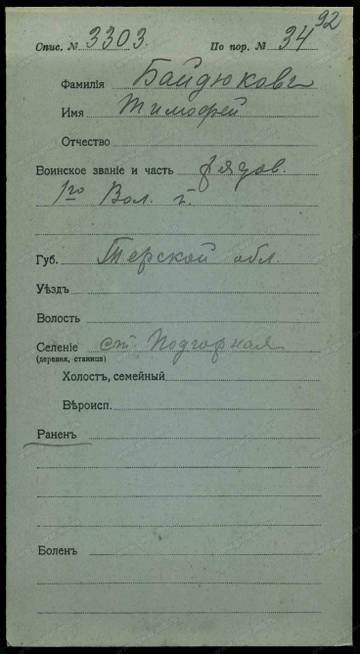 92
Спис. № 3303. По пор. № 34
Фамилія Байдюковъ
Имя Тимофей
Отчество
Воинское званіе и часть рядов.
1го Вол. п.
Губ. Терской обл.
Уѣздъ
Волость
Селеніе ст. Подгорная
(деревня, станица)
Холостъ, семейный
Вѣроисп.
Раненъ
Боленъ